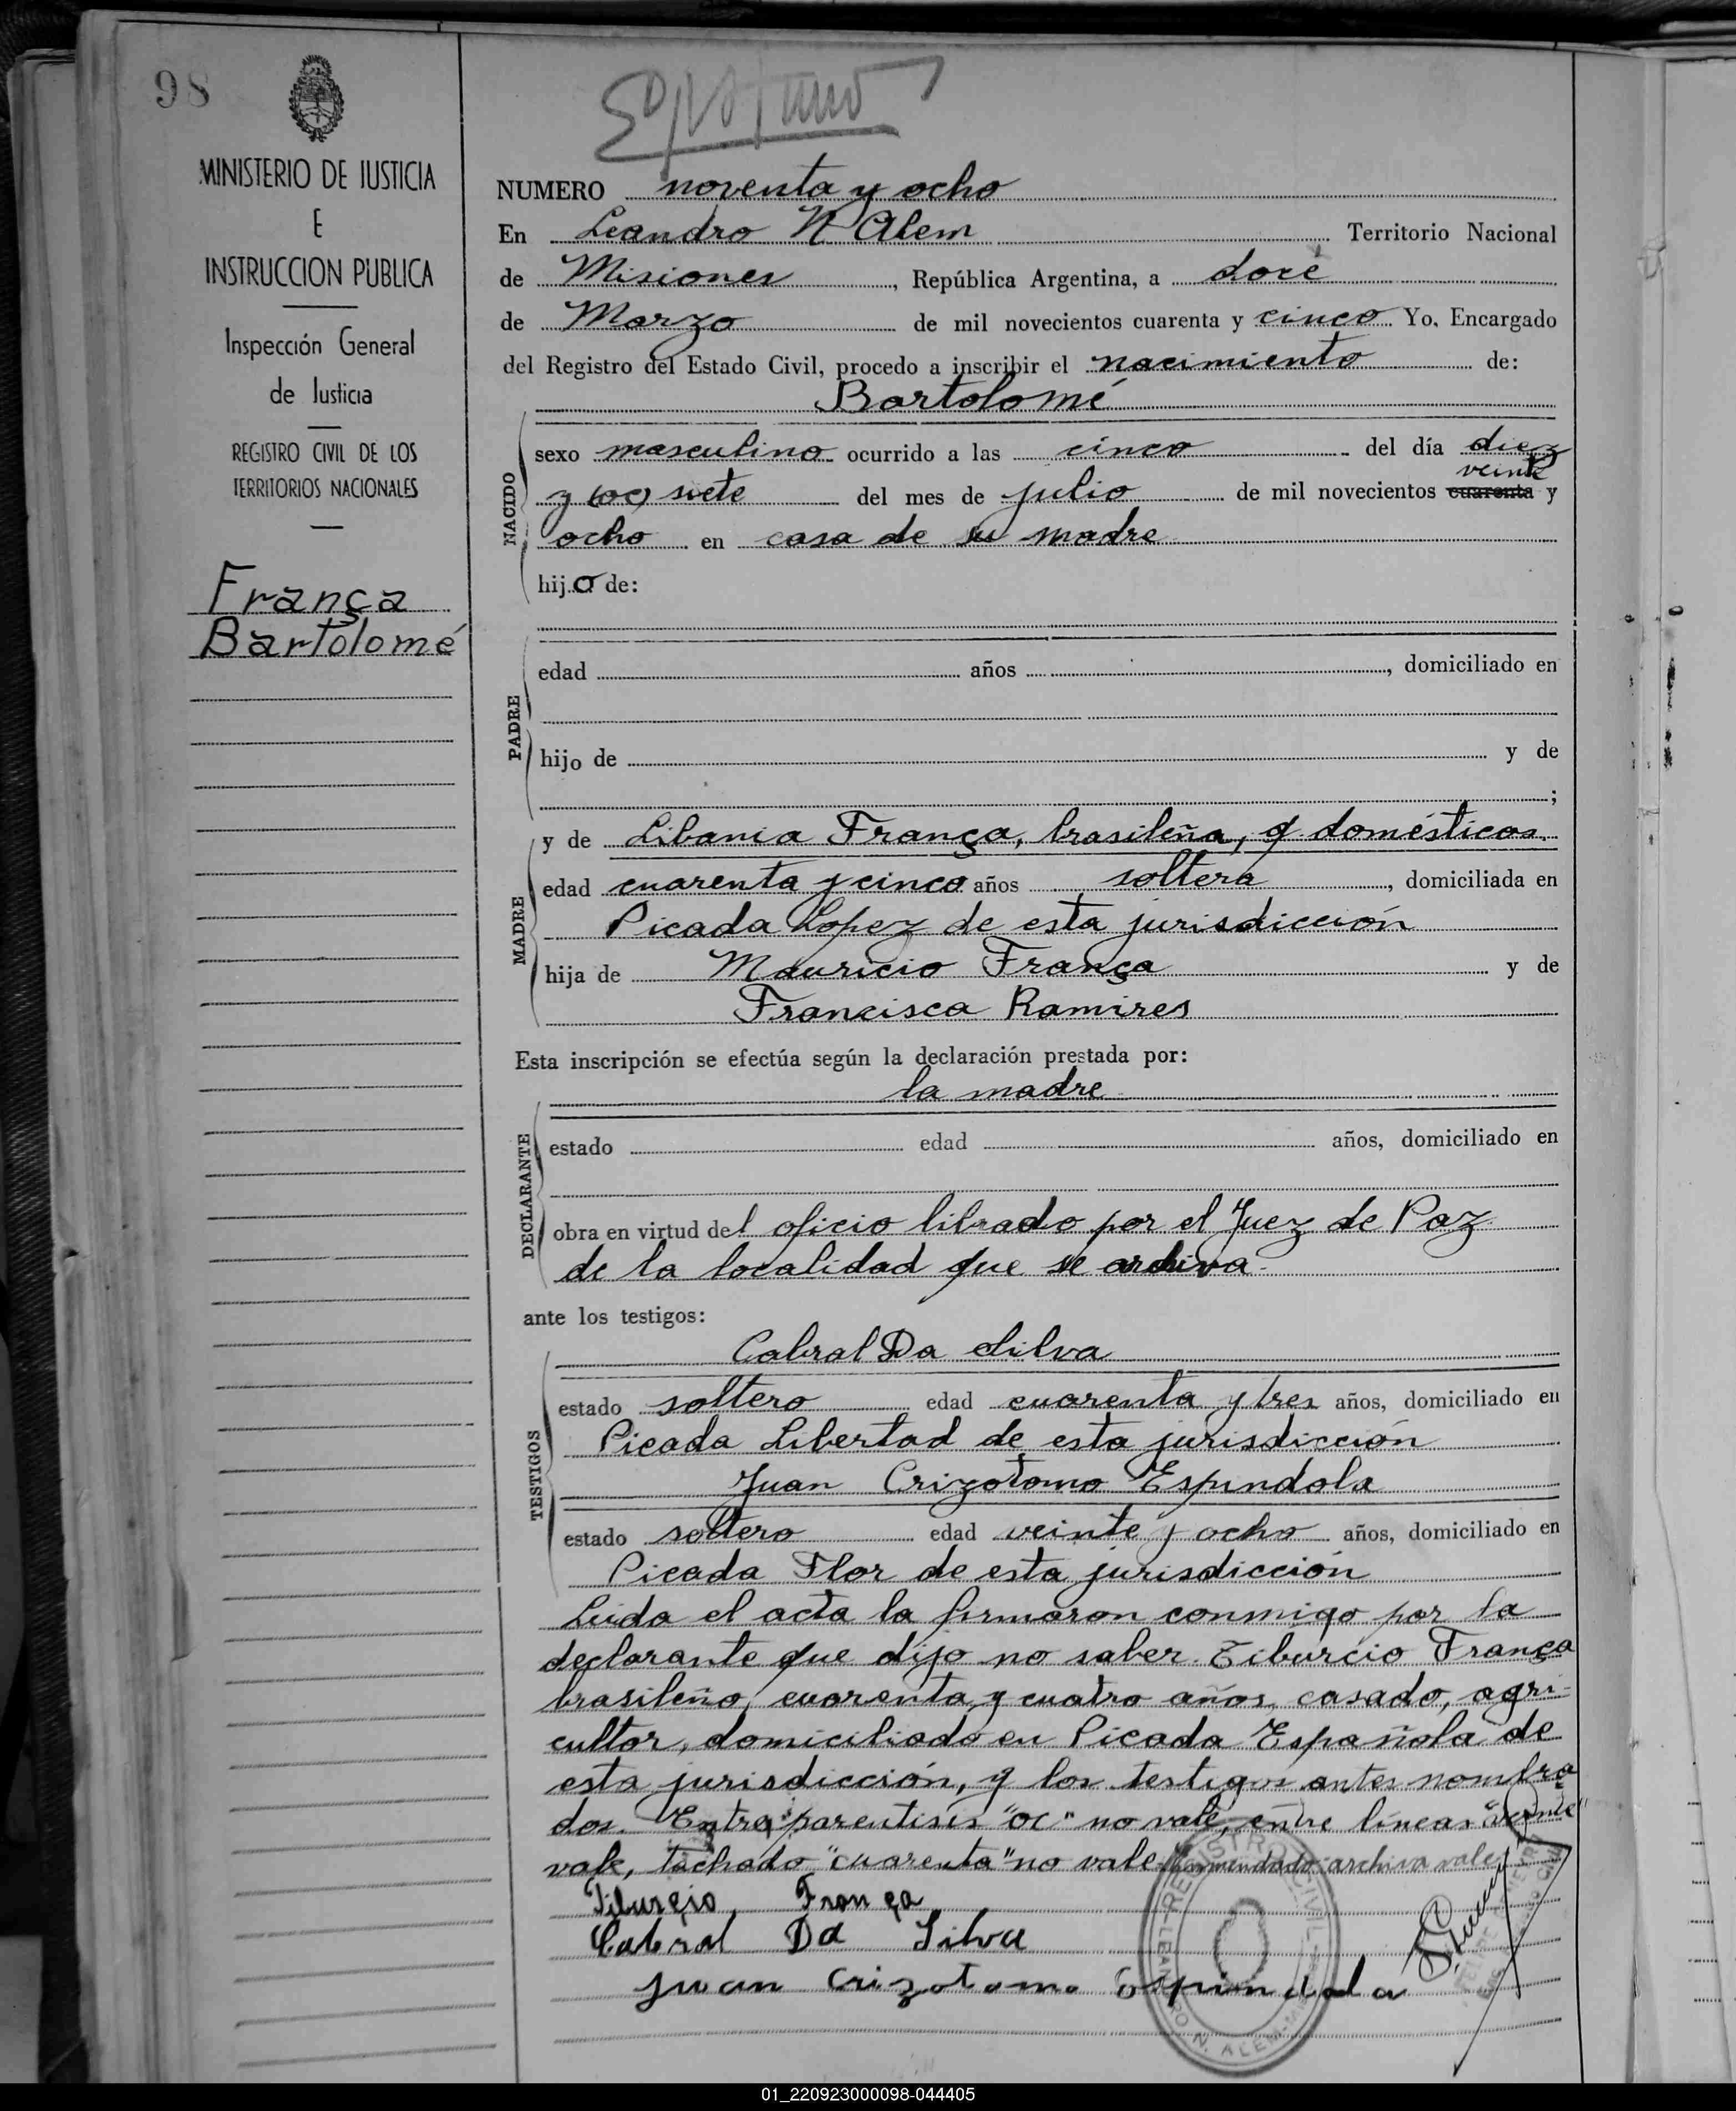 98
MINISTERIO DE JUSTICIA
E
INSTRUCCION PUBLICA
Inspección General
de Justicia
REGISTRO CIVIL DE LOS
TERRITORIOS NACIONALES
França
Bartolomé
NUMERO noventa y ocho
En Leandro N Alem Territorio Nacional
de Misiones, República Argentina, a doce
de Marzo de mil novecientos cuarenta y cinco Yo, Encargado
del Registro del Estado Civil, procedo a inscribir el nacimiento de:
Bartolomé
NACIDO
sexo masculino ocurrido a las cinco del día diez
veinte
y (oc) siete del mes de julio de mil novecientos cuarenta y
ocho en casa de su madre
hijo de:
PADRE
edad años , domiciliado en
hijo de y de
;
MADRE
y de Libania França, brasileña, q. domésticos
edad cuarenta y cinco años soltera, domiciliada en
Picada Lopez de esta jurisdicción
hija de Mauricio França y de
Francisca Ramires
Esta inscripción se efectúa según la declaración prestada por:
la madre
DECLARANTE
estado edad años, domiciliado en
obra en virtud del oficio librado por el Juez de Paz
de la localidad que se archiva
ante los testigos:
TESTIGOS
Cabral Da Silva
estado soltero edad cuarenta y tres años, domiciliado en
Picada Libertad de esta jurisdicción
Juan Crizotomo Espindola
estado soltero edad veinte y ocho años, domiciliado en
Picada Flor de esta jurisdicción
Leida el acta la firmaron conmigo por la
declarante que dijo no saber Tiburcio França
brasileño, cuarenta y cuatro años, casado, agri-
cultor, domiciliado en Picada Española de
esta jurisdicción, y los testigos antes nombra
dos. Entre parentisis "oc" no vale, entre líneas "veinte"
vale, tachado "cuarenta" no vale. Enmendado: archiva vale
Tiburcio França
Cabral Da Silva
Juan Crizotomo Espindola
REGISTRO CIVIL
LEANDRO N. ALEM
01_220923000098-044405